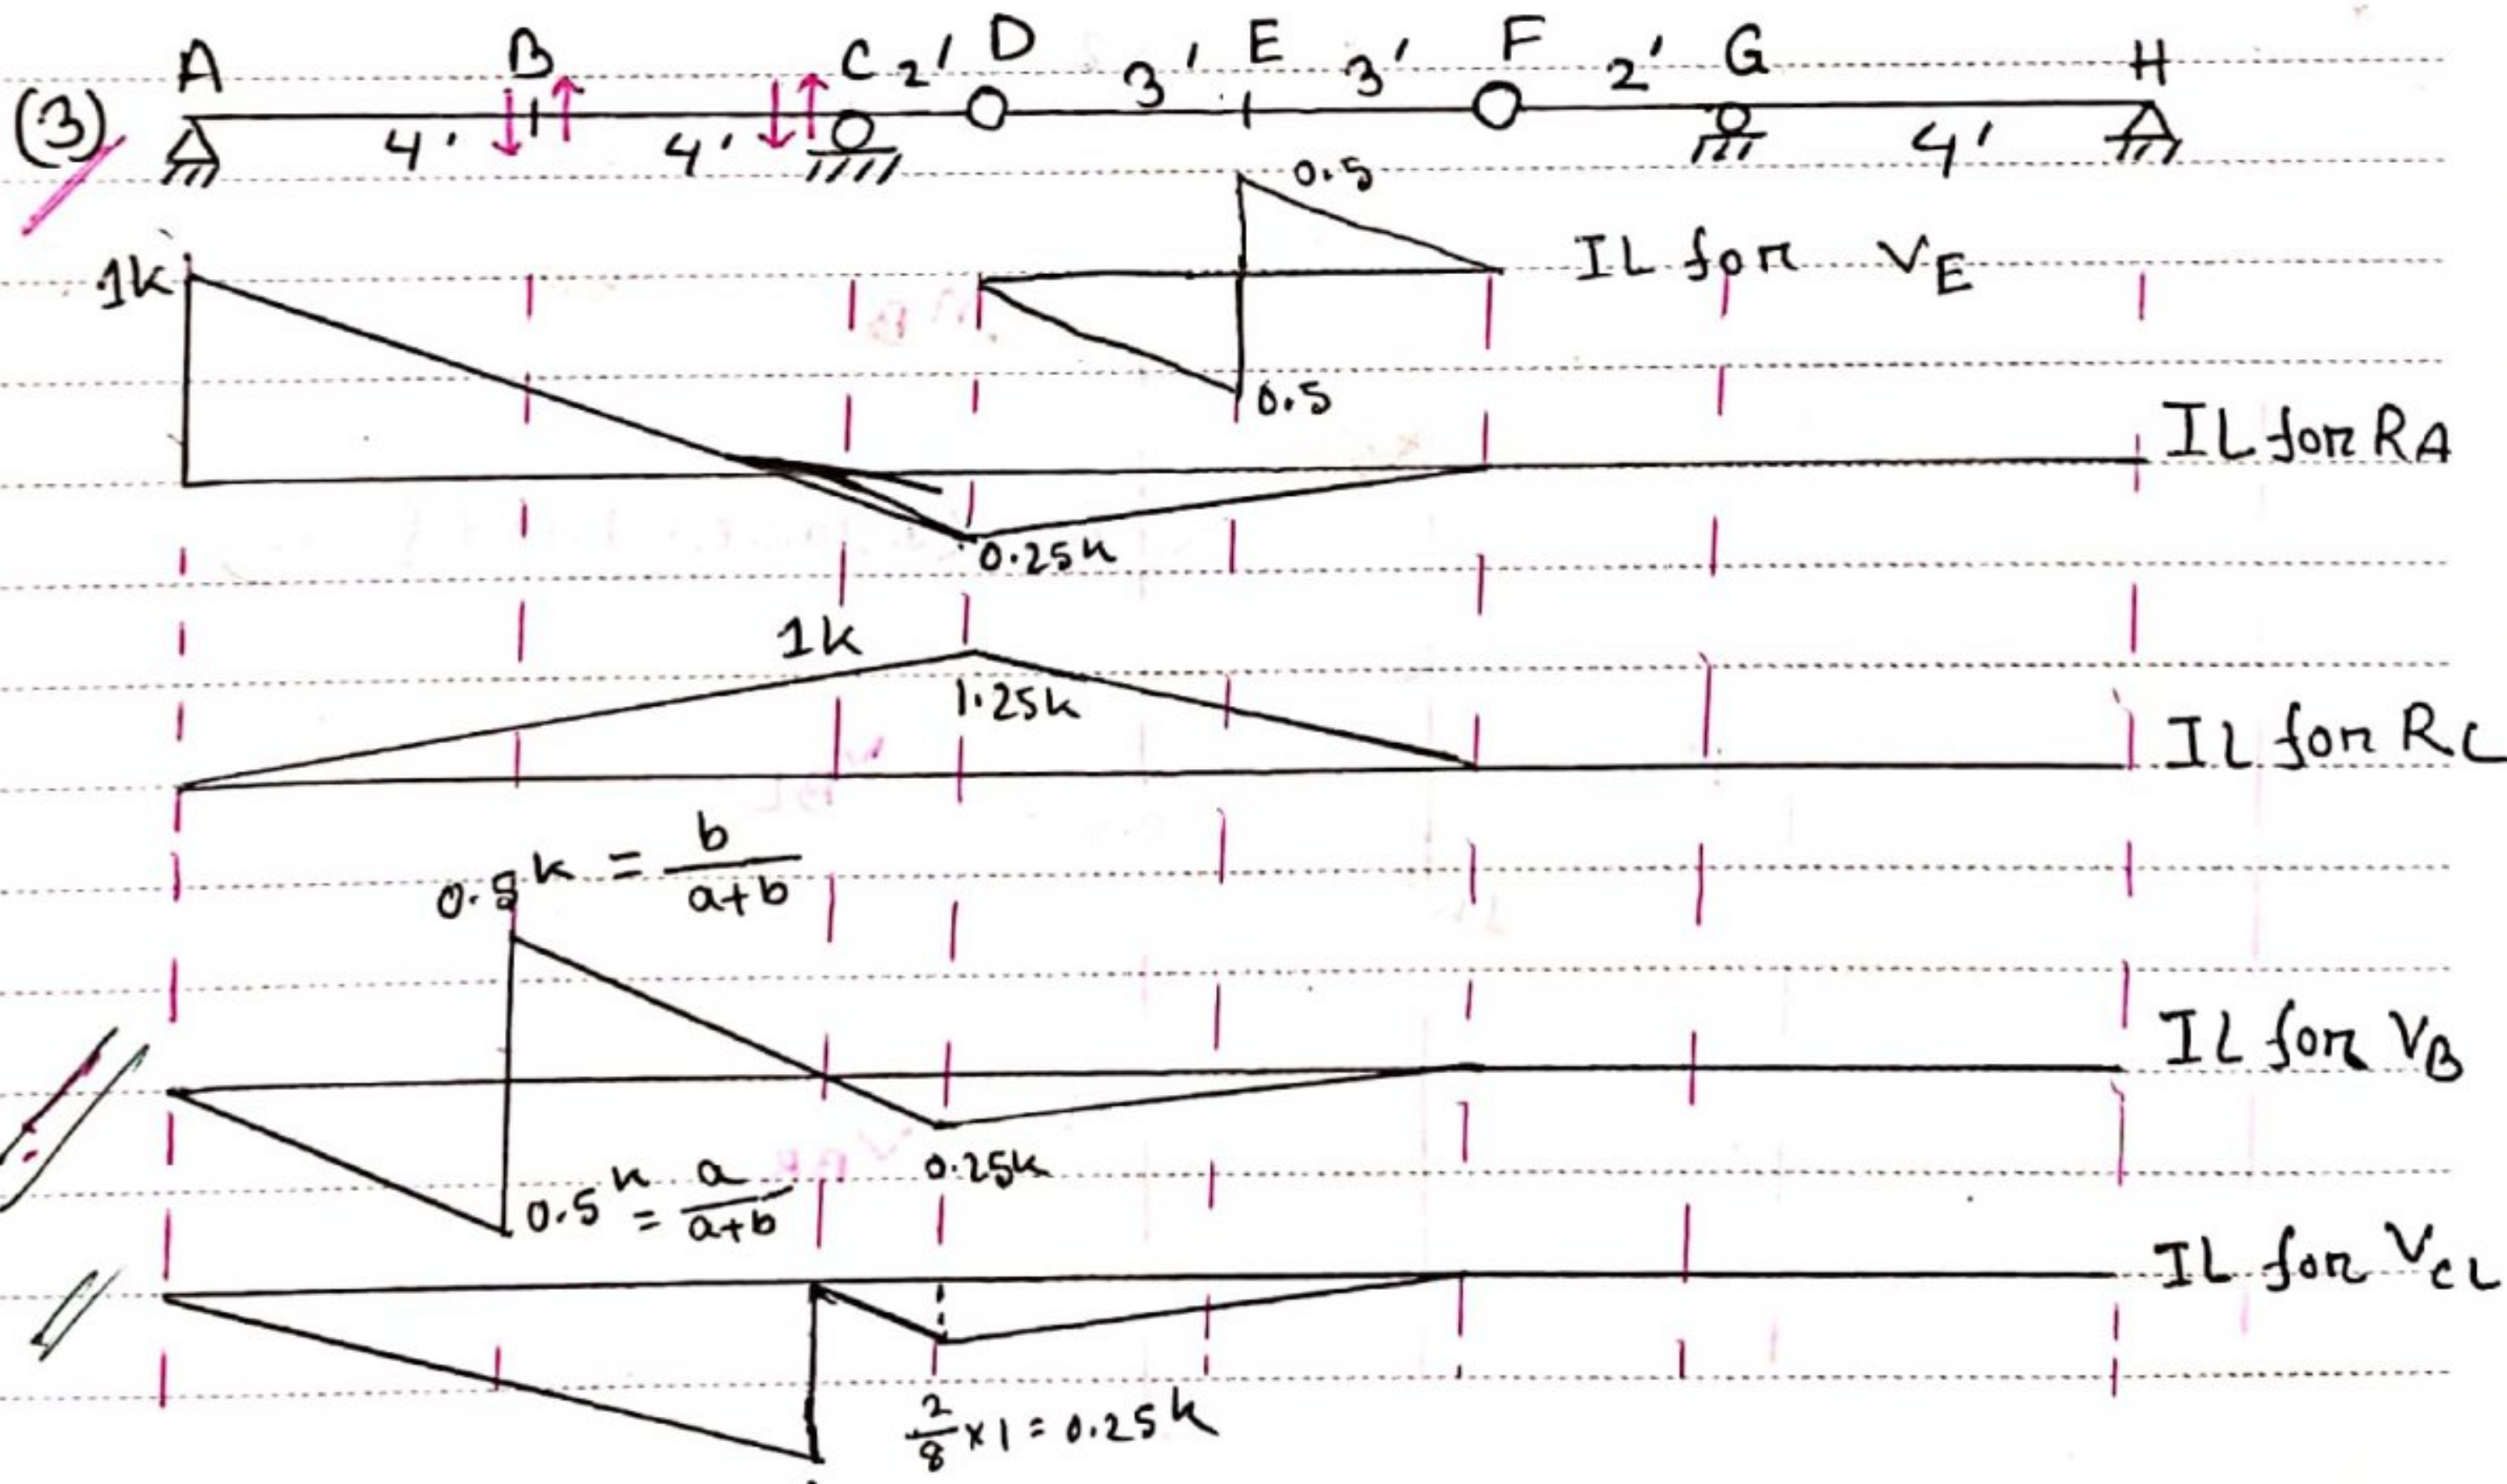 (3) A B C 2' D 3' E 3' F 2' G H
4' 4' 4'
0.5
1k IL for VE
0.5
IL for RA
0.25k
1k
1.25k
IL for RC
0.5k = b/(a+b)
IL for VB
0.25k
0.5k = a/(a+b)
IL for VCL
2/8 × 1 = 0.25k